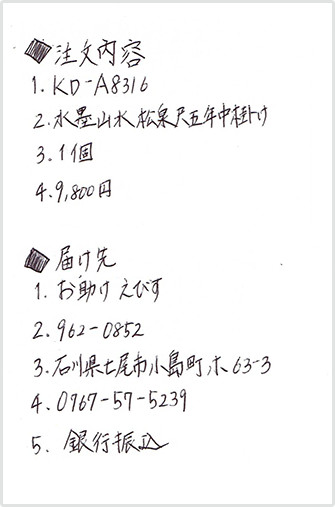 ◆注文内容
1. KD-A8316
2. 水墨山水 松泉 尺五年中掛け
3. 1個
4. 9,800円
◆届け先
1. お助け えびす
2. 962-0852
3. 石川県七尾市小島町ホ63-3
4. 0767-57-5239
5. 銀行振込